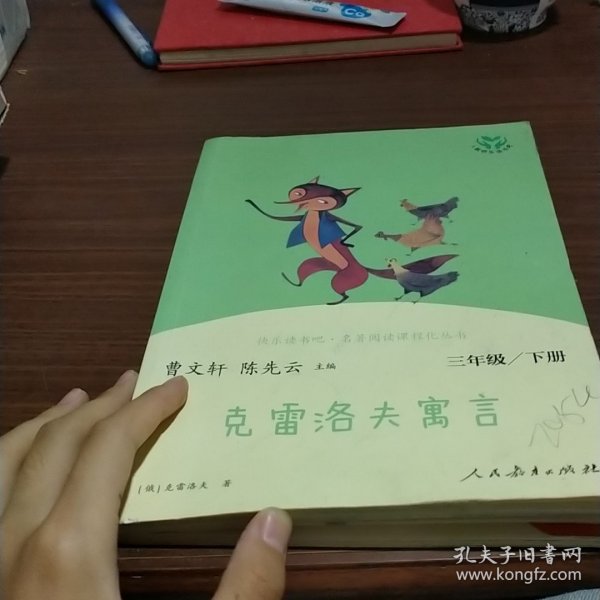 快乐读书吧·名著阅读课程化丛书
曹文轩 陈先云 主编
三年级/下册
克雷洛夫寓言
[俄]克雷洛夫 著
人民教育出版社
孔夫子旧书网
www.kongfz.com